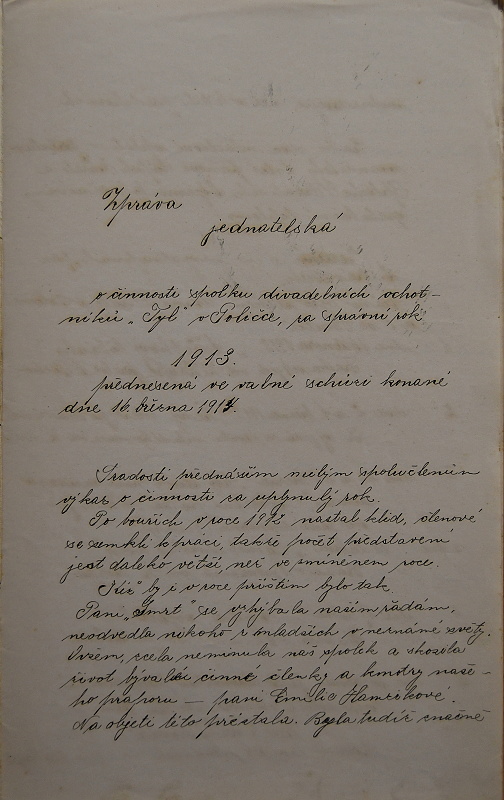 Zpráva
jednatelská
o činnosti spolku divadelních ochot-
níků „Tyl" v Poličce, za správní rok
1913.
přednesená ve valné schůzi konané
dne 16. března 1914.
S radostí přednáším milým spolučlenům
výkaz o činnosti za uplynulý rok.
Po bouřích v roce 1912 nastal klid, členové
se semkli k práci, takže počet představení
jest daleko větší, než ve zmíněném roce.
Kéž by i v roce příštím bylo tak.
Paní „Smrt" se vyhýbala našim řadám,
neodvedla nikoho z mladších v neznámé světy.
Ovšem, zcela neminula náš spolek a skosila
život bývalé činné členky a kmotry naše-
ho praporu – paní Emilie Hamzíkové.
Na oběti této přestala. Byla tudíž značně